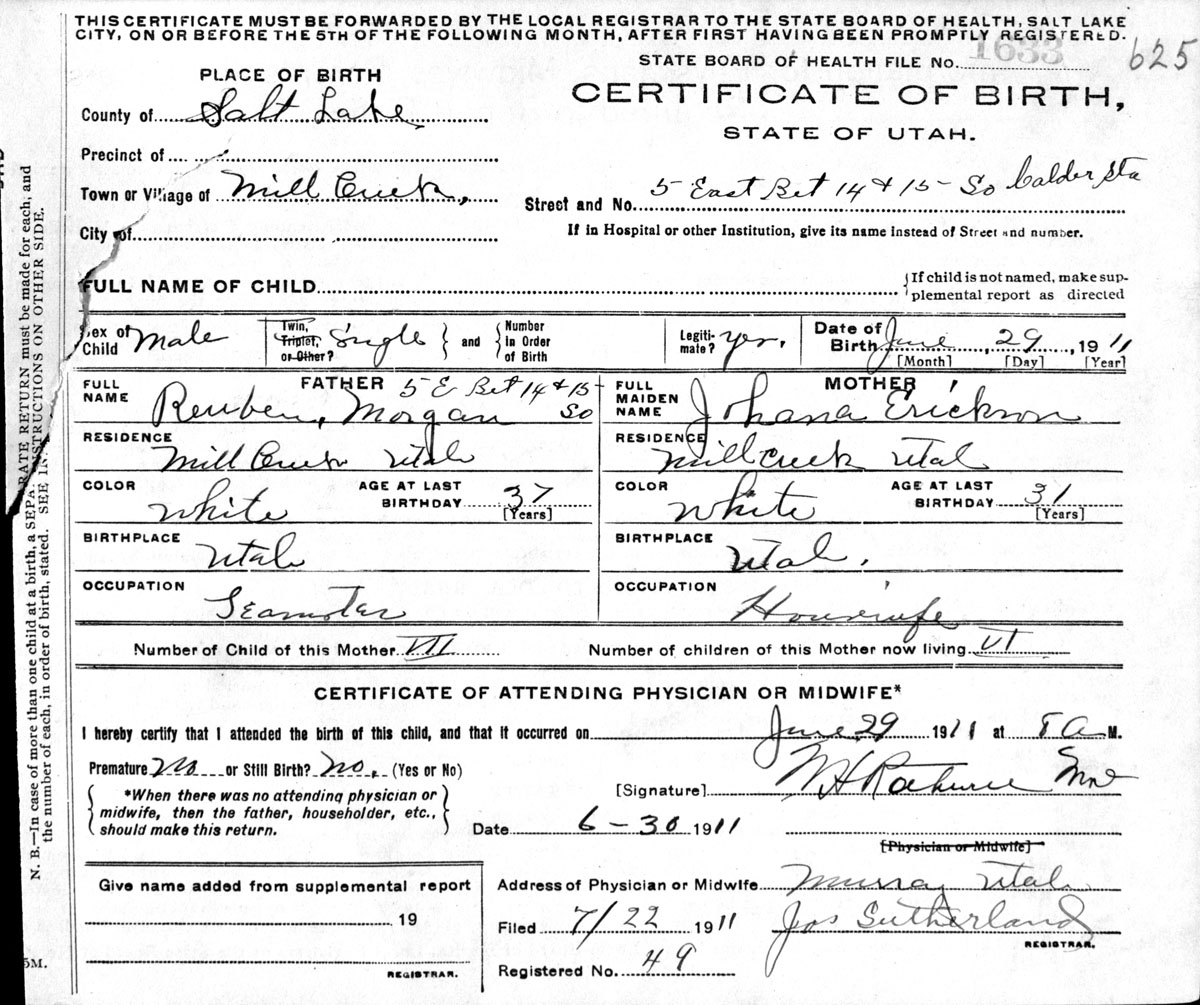 THIS CERTIFICATE MUST BE FORWARDED BY THE LOCAL REGISTRAR TO THE STATE BOARD OF HEALTH, SALT LAKE
CITY, ON OR BEFORE THE 5TH OF THE FOLLOWING MONTH, AFTER FIRST HAVING BEEN PROMPTLY REGISTERED.
STATE BOARD OF HEALTH FILE No. 1633 625
PLACE OF BIRTH
CERTIFICATE OF BIRTH,
STATE OF UTAH.
County of Salt Lake
Precinct of
Town or Village of Mill Creek,
Street and No. 5 East Bet 14 & 15 - So Calder Sta
City of
If in Hospital or other Institution, give its name instead of Street and number.
FULL NAME OF CHILD
{If child is not named, make sup-
plemental report as directed
Sex of Child Male
Twin, Triplet, or Other? Single } and { Number in Order of Birth
Legiti-mate? Yes.
Date of Birth June, 29, 1911
[Month] [Day] [Year]
FATHER
FULL NAME Reuben, Morgan 5 E Bet 14 & 15 So
MOTHER
FULL MAIDEN NAME Johana Erickson
RESIDENCE Mill Creek Utah
RESIDENCE Mill Creek Utah
COLOR White AGE AT LAST BIRTHDAY 37 [Years]
COLOR White AGE AT LAST BIRTHDAY 31 [Years]
BIRTHPLACE Utah
BIRTHPLACE Utah.
OCCUPATION Teamster
OCCUPATION Housewife
Number of Child of this Mother VII
Number of children of this Mother now living VI
CERTIFICATE OF ATTENDING PHYSICIAN OR MIDWIFE*
I hereby certify that I attended the birth of this child, and that it occurred on June 29 1911 at A M.
Premature No or Still Birth? No. (Yes or No)
{ *When there was no attending physician or
midwife, then the father, householder, etc.,
should make this return. }
[Signature]
Date 6-30 1911
[Physician or Midwife]
Give name added from supplemental report
19
REGISTRAR.
Address of Physician or Midwife Murray Utah
Filed 7/22 1911 Jos Sutherland
REGISTRAR.
Registered No. 49
N. B.—In case of more than one child at a birth, a SEPARATE RETURN must be made for each, and
the number of each, in order of birth, stated. SEE INSTRUCTIONS ON OTHER SIDE.
5M.